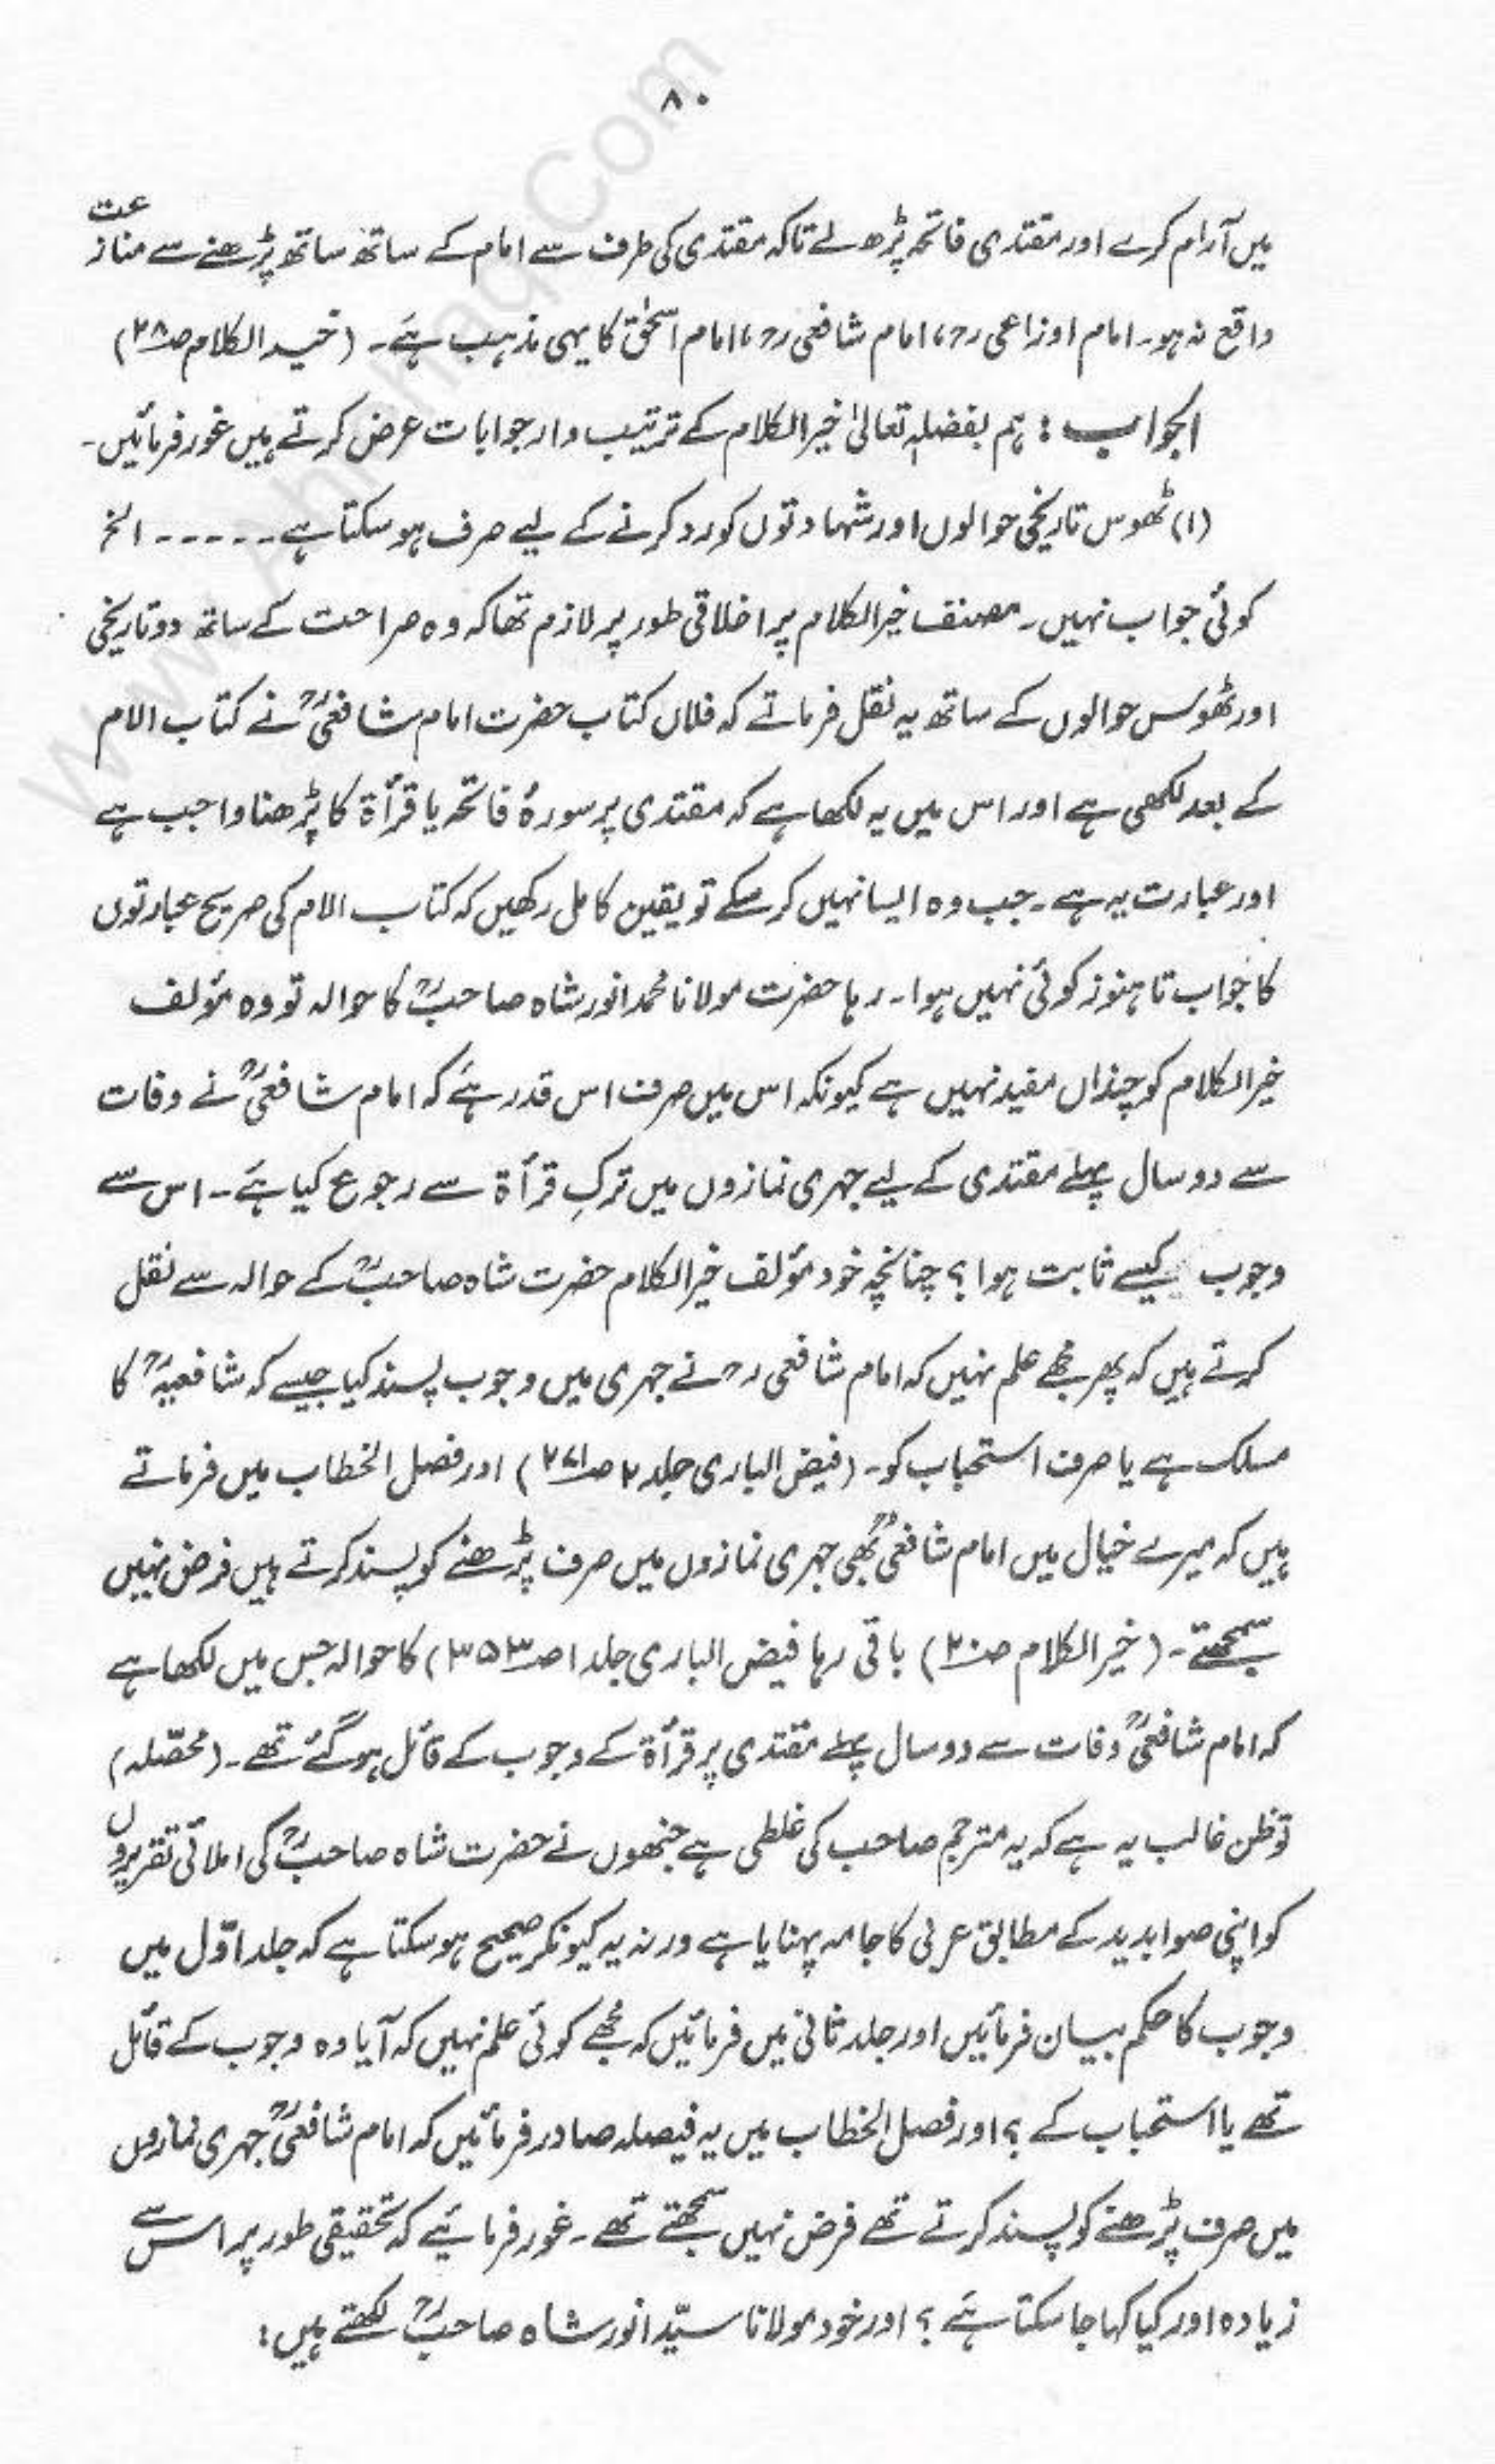 ۸۰
میں آرام کرے اور مقتدی فاتحہ پڑھ لے تاکہ مقتدی کی طرف سے امام کے ساتھ ساتھ پڑھنے سے منازعت
واقع نہ ہو۔ امام اوزاعی رح، امام شافعی رح، امام اسحٰق کا یہی مذہب ہے۔ (خیر الکلام ص۲۸)
الجواب: ہم بفضلہٖ تعالیٰ خیر الکلام کے ترتیب وار جوابات عرض کرتے ہیں غور فرمائیں۔
(۱) ٹھوس تاریخی حوالوں اور شہادتوں کو رد کرنے کے لیے صرف ہو سکتا ہے ۔۔۔۔۔ الخ
کوئی جواب نہیں۔ مصنف خیر الکلام پر اخلاقی طور پر لازم تھا کہ وہ صراحت کے ساتھ دو تاریخی
اور ٹھوس حوالوں کے ساتھ یہ نقل فرماتے کہ فلاں کتاب حضرت امام شافعیؒ نے کتاب الام
کے بعد لکھی ہے اور اس میں یہ لکھا ہے کہ مقتدی پر سورۂ فاتحہ یا قرأۃ کا پڑھنا واجب ہے
اور عبارت یہ ہے۔ جب وہ ایسا نہیں کر سکے تو یقین کامل رکھیں کہ کتاب الام کی صریح عبارتوں
کا جواب تا ہنوز کوئی نہیں ہوا۔ رہا حضرت مولانا محمد انور شاہ صاحبؒ کا حوالہ تو وہ مؤلف
خیر الکلام کو چنداں مفید نہیں ہے کیونکہ اس میں صرف اس قدر ہے کہ امام شافعیؒ نے وفات
سے دو سال پہلے مقتدی کے لیے جہری نمازوں میں ترکِ قرأۃ سے رجوع کیا ہے۔ اس سے
وجوب کیسے ثابت ہوا؟ چنانچہ خود مؤلف خیر الکلام حضرت شاہ صاحبؒ کے حوالہ سے نقل
کرتے ہیں کہ پھر مجھے علم نہیں کہ امام شافعی رح نے جہری میں وجوب پسند کیا جیسے کہ شافعیہؒ کا
مسلک ہے یا صرف استحباب کو۔ (فیض الباری جلد ۲ ص۲۷۱) اور فصل الخطاب میں فرماتے
ہیں کہ میرے خیال میں امام شافعیؒ بھی جہری نمازوں میں صرف پڑھنے کو پسند کرتے ہیں فرض نہیں
سمجھتے۔ (خیر الکلام ص۲۰) باقی رہا فیض الباری جلد ۱ ص۳۵۳) کا حوالہ جس میں لکھا ہے
کہ امام شافعیؒ وفات سے دو سال پہلے مقتدی پر قرأۃ کے وجوب کے قائل ہو گئے تھے۔ (محصّلہ)
تو ظن غالب یہ ہے کہ یہ مترجم صاحب کی غلطی ہے جنھوں نے حضرت شاہ صاحبؒ کی املائی تقریروں
کو اپنی صوابدید کے مطابق عربی کا جامہ پہنایا ہے ورنہ یہ کیونکر صحیح ہو سکتا ہے کہ جلد اوّل میں
وجوب کا حکم بیان فرمائیں اور جلد ثانی میں فرمائیں کہ مجھے کوئی علم نہیں کہ آیا وہ وجوب کے قائل
تھے یا استحباب کے؟ اور فصل الخطاب میں یہ فیصلہ صادر فرمائیں کہ امام شافعیؒ جہری نمازوں
میں صرف پڑھنے کو پسند کرتے تھے فرض نہیں سمجھتے تھے۔ غور فرمائیے کہ تحقیقی طور پر اس سے
زیادہ اور کیا کہا جا سکتا ہے؟ اور خود مولانا سیّد انور شاہ صاحبؒ لکھتے ہیں: